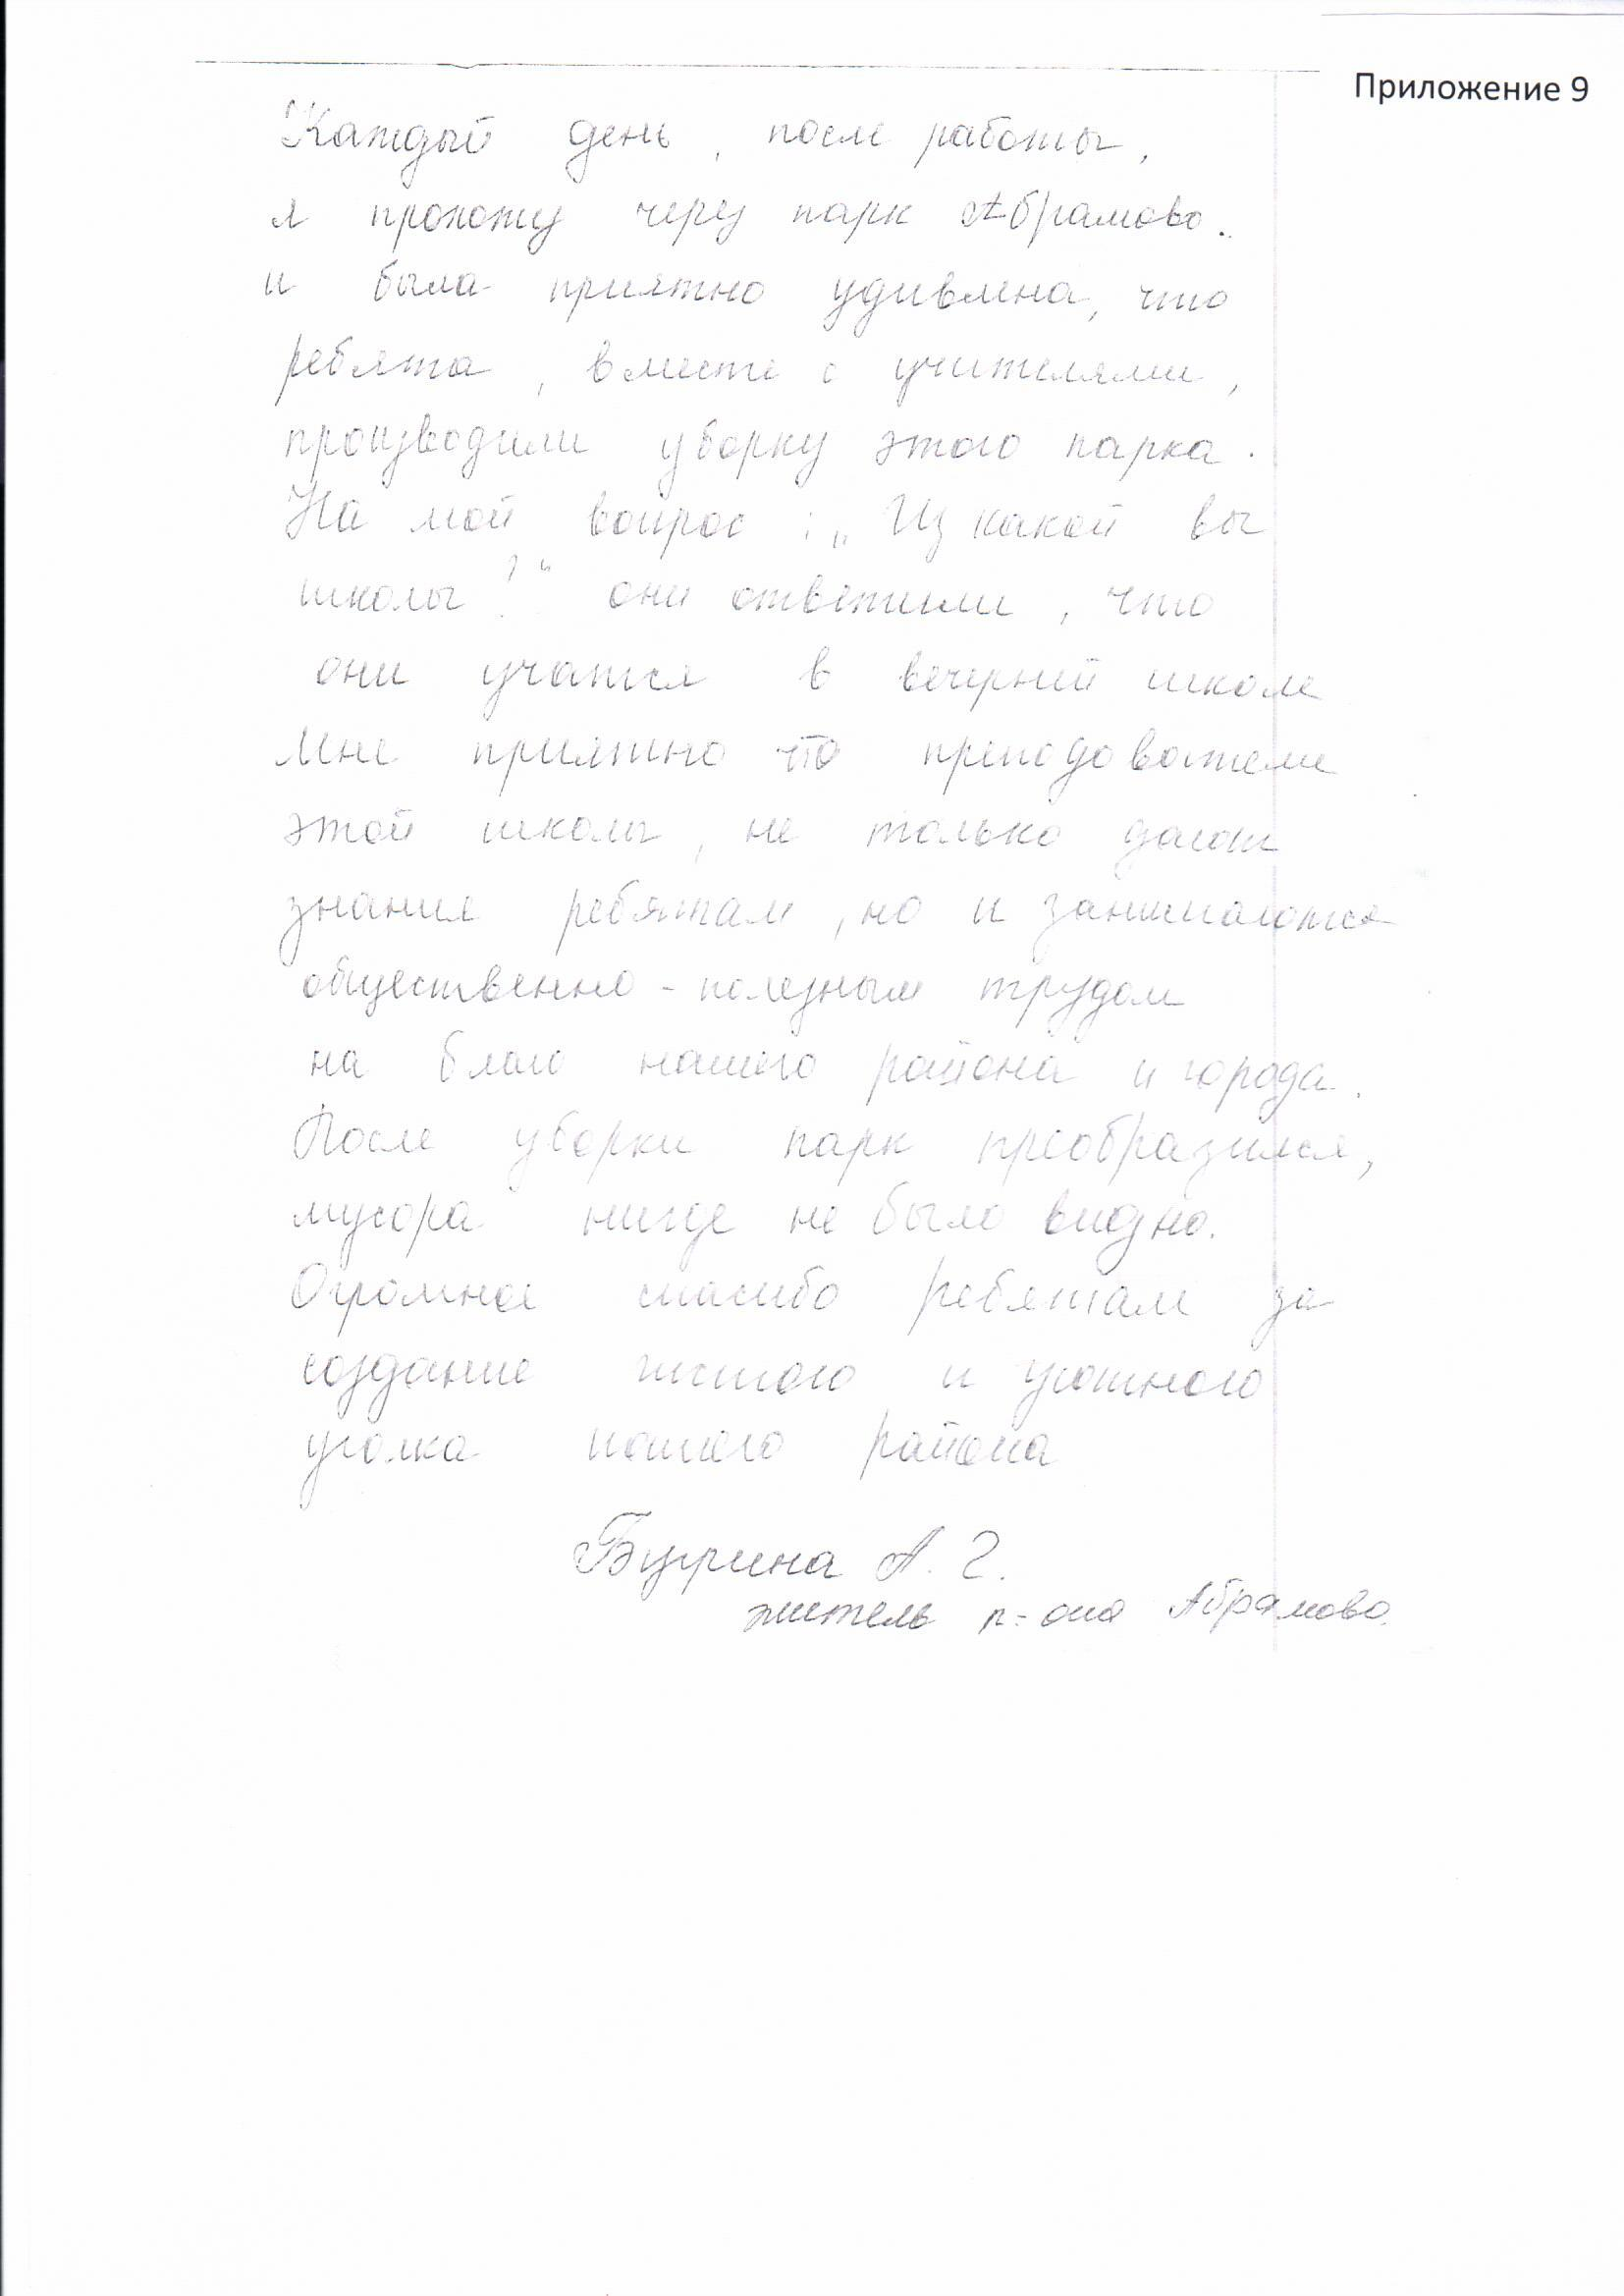 Приложение 9
Каждый день, после работы,
я прохожу через парк Абрамово.
и была приятно удивлена, что
ребята, вместе с учителями,
производили уборку этого парка.
На мой вопрос: „Из какой вы
школы?“ они ответили, что
они учатся в вечерней школе
Мне приятно что преподователи
этой школы, не только дают
знания ребятам, но и занимаются
общественно-полезным трудом
на благо нашего района и города.
После уборки парк преобразился,
мусора нигде не было видно.
Огромное спасибо ребятам за
создание чистого и уютного
уголка нашего района
А. Г.
житель р-она Абрамово.